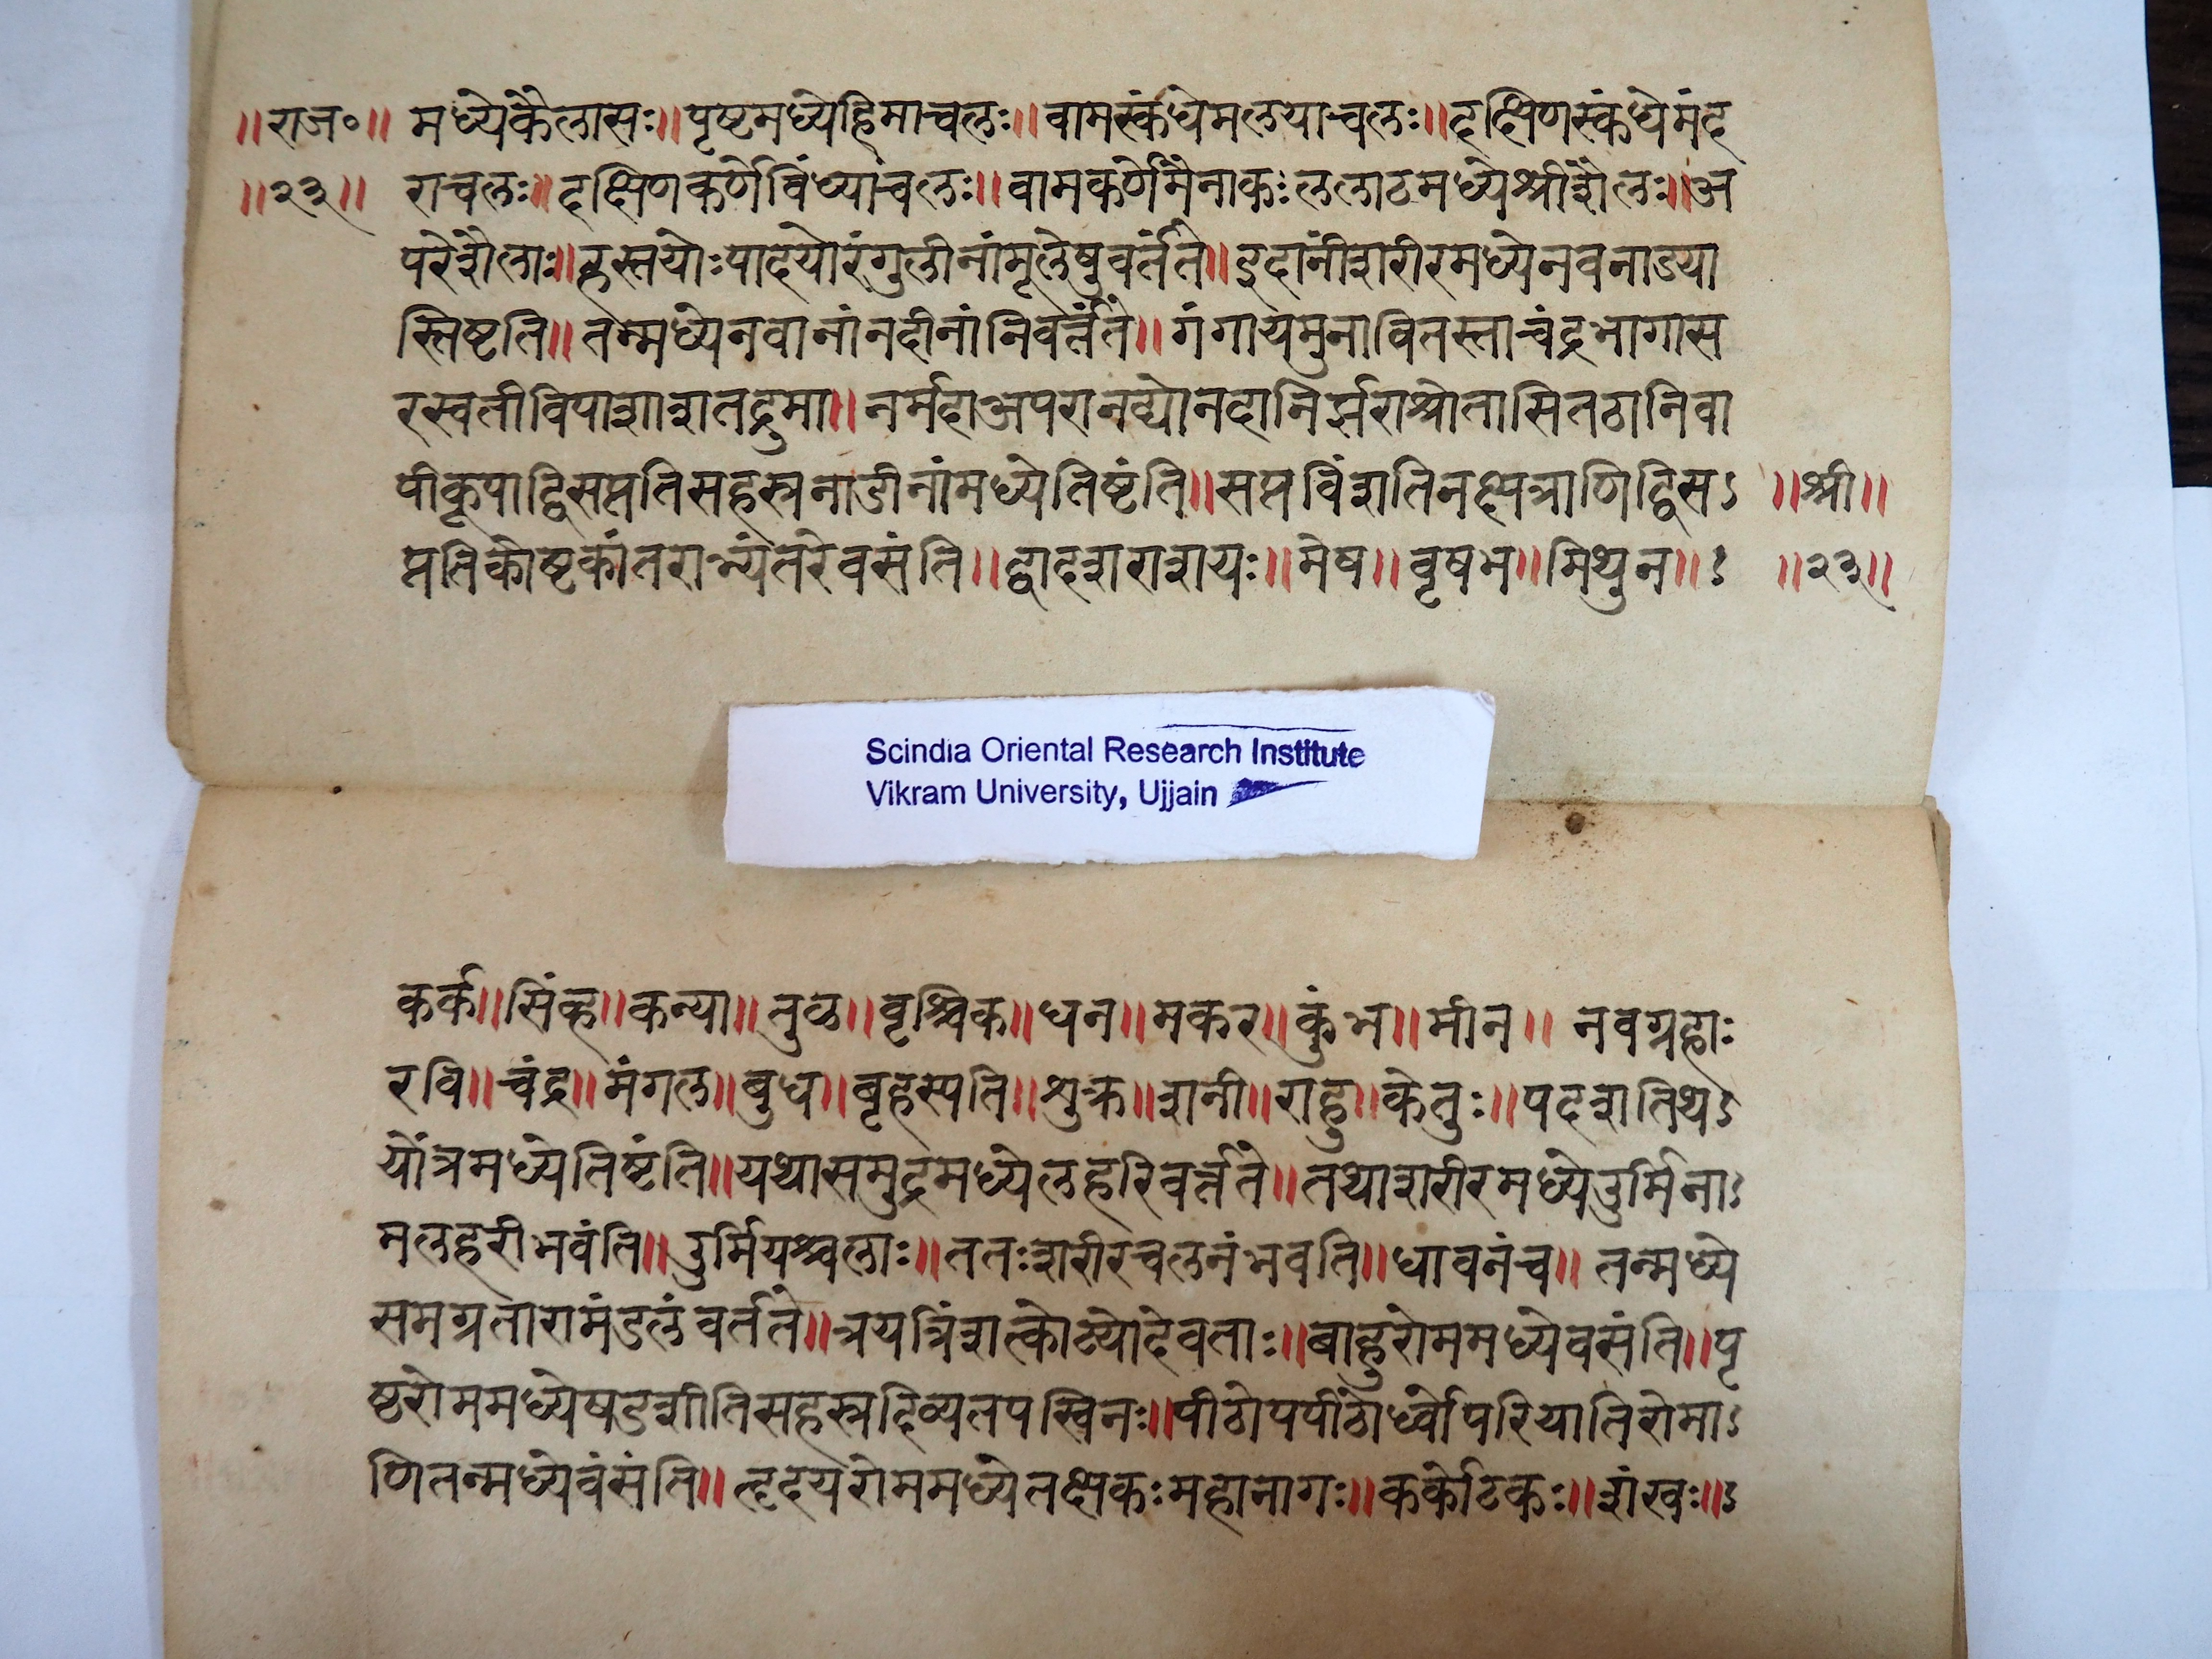 ॥राज॰॥ मध्येकैलासः॥पृष्टमध्येहिमाचलः॥वामस्कंधेमलयाचलः॥दक्षिणस्कंधेमंद
॥२३॥ राचलः॥दक्षिणकर्णेविंध्याचलः॥वामकर्णेमैनाकःललाठमध्येश्रीशैलः॥अ
परेशैलाः॥हस्तयोःपादयोरंगुलीनांमूलेषुवर्तंते॥इदानींशरीरमध्येनवनाड्या
स्तिष्टति॥तन्मध्येनवानांनदीनांनिवर्त्तंते॥गंगायमुनावितस्ताचंद्रभागास
रस्वतीविपाशाशतद्रुमा॥नर्मदाअपरानद्योनदानिर्झराश्रोतासितठानिवा
पीकूपाद्विसप्ततिसहस्त्रनाडीनांमध्येतिष्टंति॥सप्तविंशतिनक्षत्राणिद्विसऽ ॥श्री॥
प्ततिकोष्टकांतराभ्यंतरेवसंति॥द्वादशराशयः॥मेष॥वृषभ॥मिथुन॥ऽ ॥२३॥
Scindia Oriental Research Institute
Vikram University, Ujjain
कर्क॥सिंव्ह॥कन्या॥तुळ॥वृश्चिक॥धन॥मकर॥कुंभ॥मीन॥ नवग्रहाः
रवि॥चंद्र॥मंगल॥बुध॥बृहस्पति॥शुक्र॥शनी॥राहु॥केतुः॥पदशतिथऽ
योंत्रमध्येतिष्टंति॥यथासमुद्रमध्येलहरिवर्त्तते॥तथाशरीरमध्येउर्मिनाऽ
मलहरीभवंति॥उर्मियश्चलाः॥ततःशरीरचलनंभवति॥धावनंच॥तन्मध्ये
समग्रतारामंडलंवर्तते॥त्रयत्रिंशत्कोट्योदेवताः॥बाहुरोममध्येवसंति॥पृ
ष्ठरोममध्येषडशीतिसहस्त्रदिव्यतपस्विनः॥पीठोपपीठोर्ध्वोपरियातिरोमाऽ
णितन्मध्येवंसंति॥हृदयरोममध्येतक्षकःमहानागः॥कर्कोटिकः॥शंखः॥ऽ